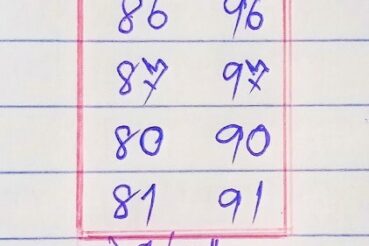 86 96
87 97
80 90
81 91